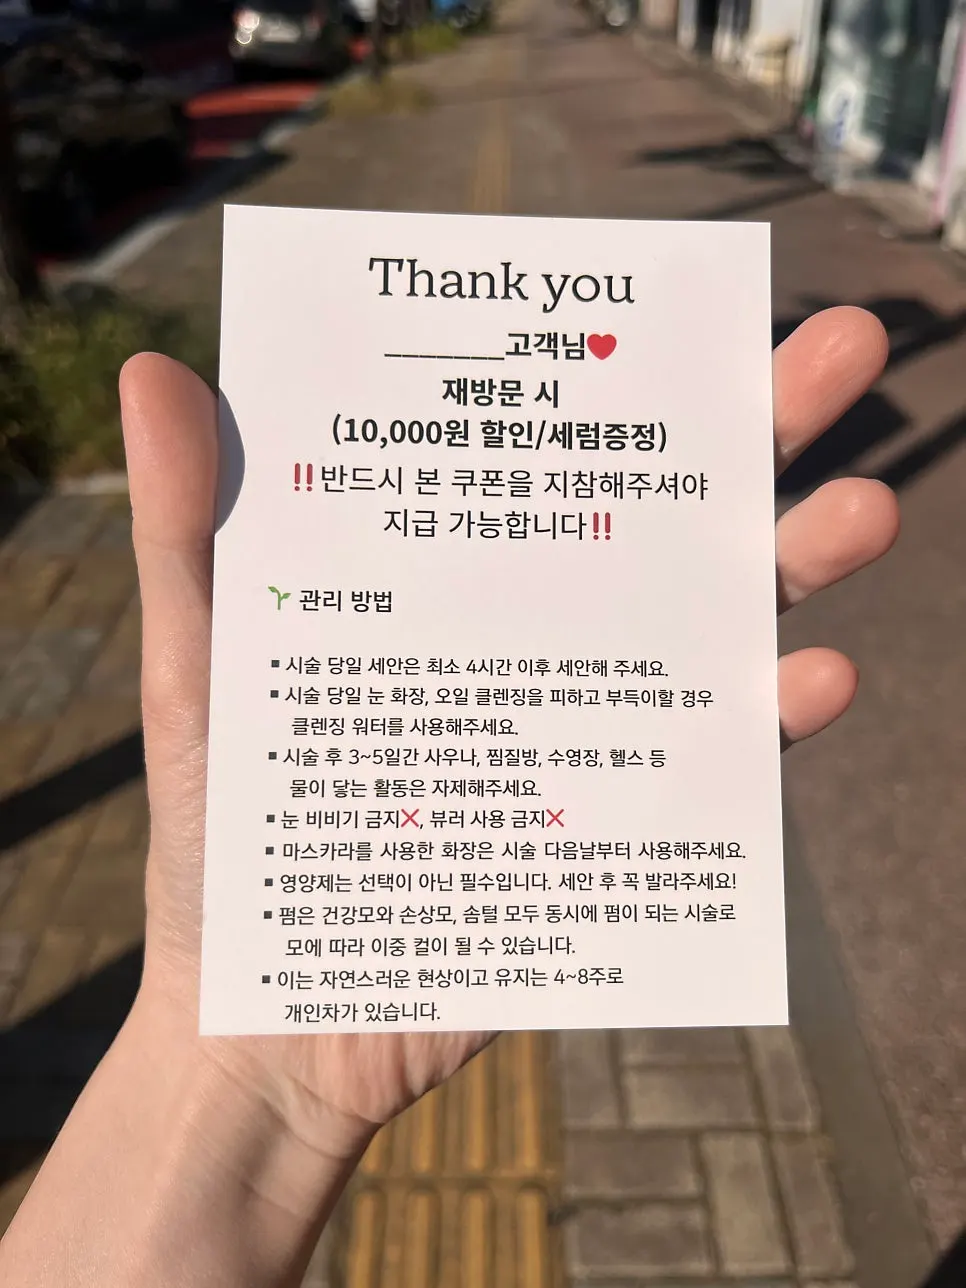 Thank you
________고객님❤️
재방문 시
(10,000원 할인/세럼증정)
‼️반드시 본 쿠폰을 지참해주셔야
지급 가능합니다‼️
🌱 관리 방법
▪️시술 당일 세안은 최소 4시간 이후 세안해 주세요.
▪️시술 당일 눈 화장, 오일 클렌징을 피하고 부득이할 경우
클렌징 워터를 사용해주세요.
▪️시술 후 3~5일간 사우나, 찜질방, 수영장, 헬스 등
물이 닿는 활동은 자제해주세요.
▪️눈 비비기 금지❌, 뷰러 사용 금지❌
▪️ 마스카라를 사용한 화장은 시술 다음날부터 사용해주세요.
▪️영양제는 선택이 아닌 필수입니다. 세안 후 꼭 발라주세요!
▪️펌은 건강모와 손상모, 솜털 모두 동시에 펌이 되는 시술로
모에 따라 이중 컬이 될 수 있습니다.
▪️이는 자연스러운 현상이고 유지는 4~8주로
개인차가 있습니다.